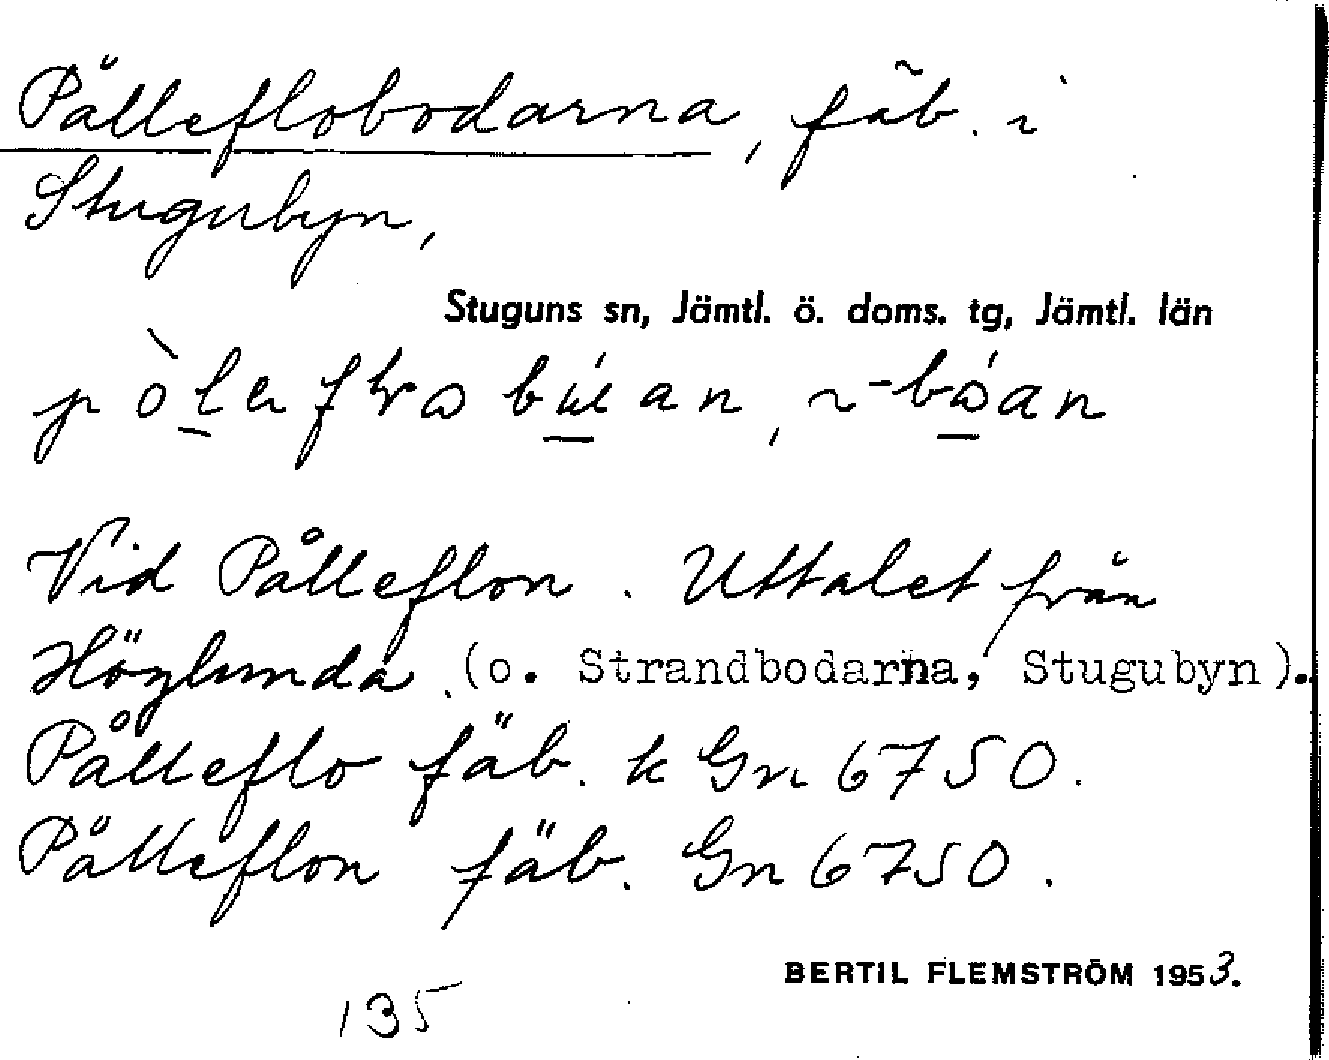 Pålleflobodarna, fäb. i
Stugubyn,
Stuguns sn, Jämtl. ö. doms. tg, Jämtl. län
Vid Pålleflon. Uttalet från
Höglunda (o. Strandbodarna, Stugubyn).
Pålleflo fäb. k Gn 6750.
Pålleflon fäb. Gn 6750.
BERTIL FLEMSTRÖM 1953.
135